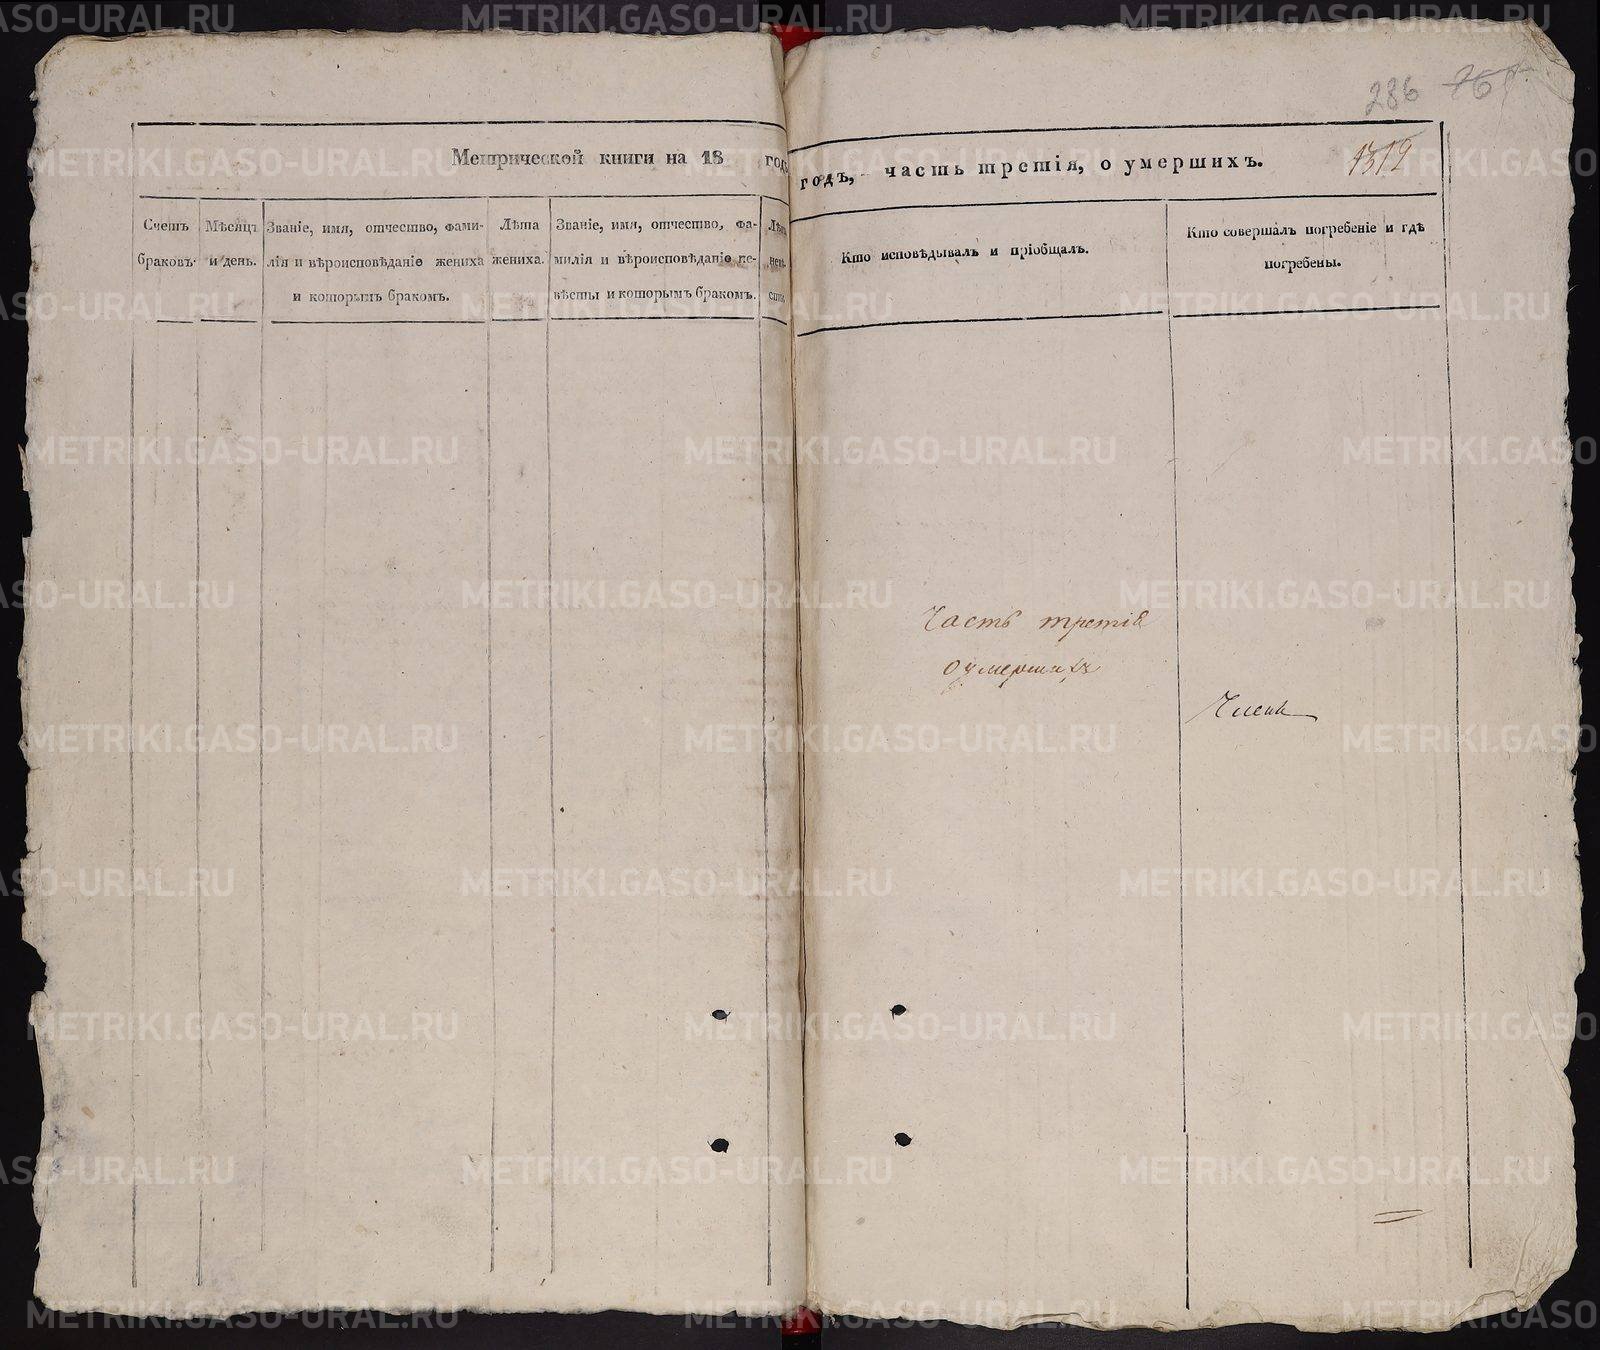 286
1319
Метрической книги на 18 годъ
Счетъ браковъ.
Мѣсяцъ и день.
Званіе, имя, отчество, фами-
лія и вѣроисповѣданіе жениха
и которымъ бракомъ.
Лѣта
жениха.
Званіе, имя, отчество, фа-
милія и вѣроисповѣданіе не-
вѣсты и которымъ бракомъ.
Лѣта
невѣ
сты
годъ, часть третія, о умершихъ.
Кто исповѣдывалъ и пріобщалъ.
Кто совершалъ погребеніе и гдѣ
погребены.
Часть третія
о умершихъ
METRIKI.GASO-URAL.RU